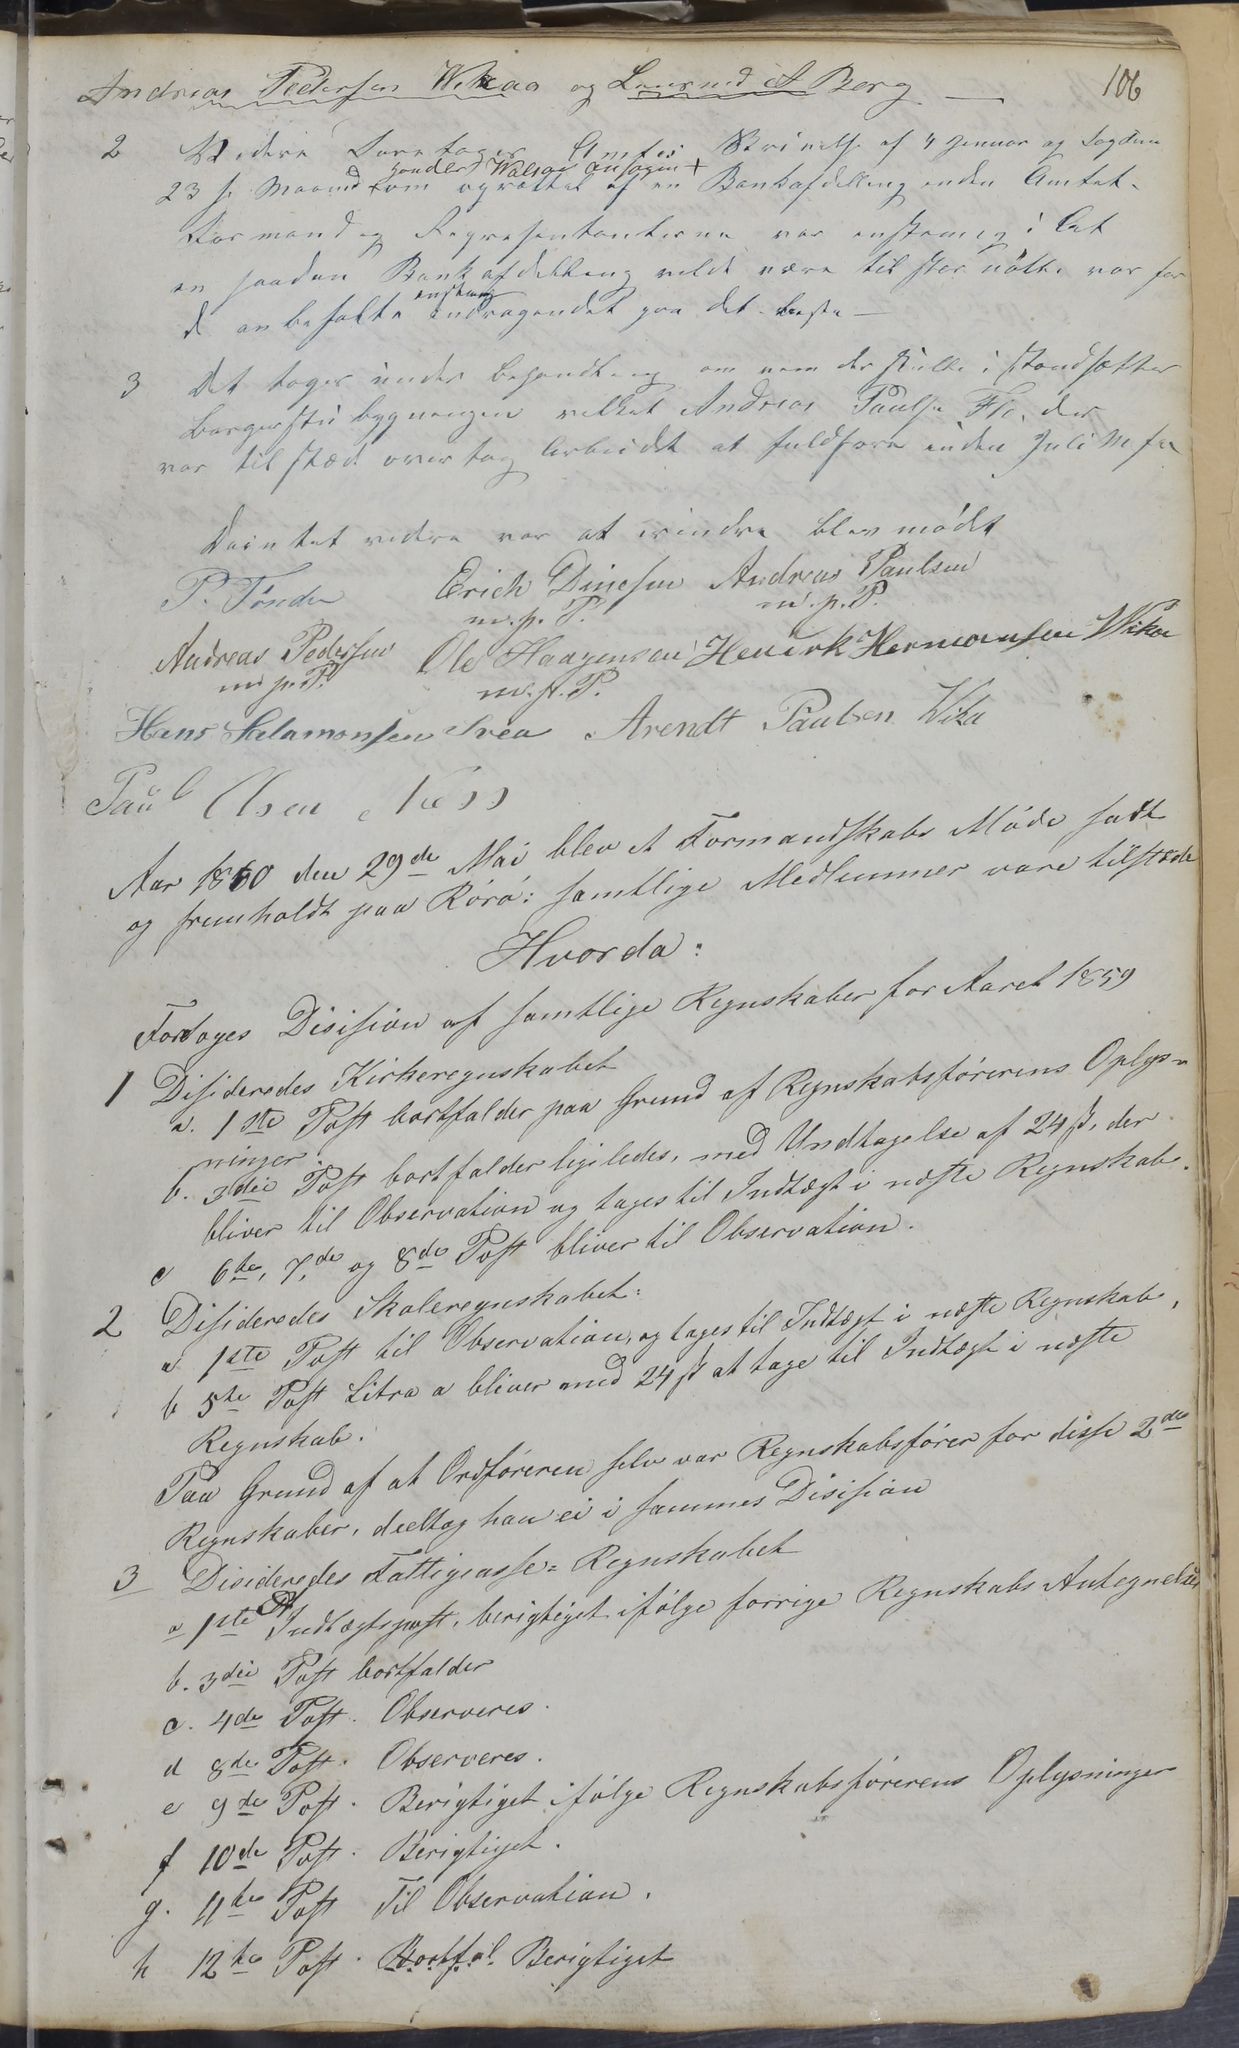 106
Andreas Pedersen Wikaa og Leurnd A Berg
2 Videre Foretoges Amtes Skrivelse af 4 Januar og Fogdens
gaader Walsøe ansøgn +
23 s. Maaned om oprættet af en Bankafdelling inden Amtet.
Formand og Repræsentanterne var enstemig i at
en saadan Bankafdelling vilde være til stor nøtte var for
enstemig
d anbefalte andragendet paa det beste
3 Det toges under behandling om vem der skulle i standsætte
Borgerstubygningen vilket Andreas Pauls. Flo. der
var tilstæde overtog Arbeidet at fuldføre inden Juli M
Da intet videre var at erindre blev mødet
P. Tønder Erich Dinesen Andreas Paulsen
m. p. P. m. p. P.
Andreas Pedersen Ole Haagensen Henrik Hermansen Wika
m. p. P. m. p. P.
Hans Salamonsen Svea Arendt Paulsen Wika
Paul Olsen Næss
Aar 1860 den 29de Mai blev et Formandskabs Møde sadt
og fremholdt paa Rörö: samtlige Medlemmer vare tilstæde
Hvorda:
Foretoges Disision af samtlige Regnskaber for Aaret 1859
1 Disideredes Kirkeregnskabet
a. 1ste Post bortfalder paa Grund af Regnskabsførerens Oplys=
ninger.
b. 3die Post bortfalder ligeledes, med Undtagelse af 24 ß, der
bliver til Observation og tages til Indtægt i næste Regnskab.
c 6te, 7de og 8de Post bliver til Observation.
2 Disideredes Skoleregnskabet:
a 1ste Post til Observation, og tages til Indtægt i næste Regnskab,
b 5te Post Litra a bliver med 24 ß at tage til Indtægt i næste
Regnskab.
Paa Grund af at Ordføreren selv var Regnskabsfører for disse 2de
Regnskaber, deeltog han ei i sammes Disision
3 Disideredes Fattigcasse=Regnskabet
a 1ste Indtægtspost, berigtiget ifølge forrige Regnskabs Antegnelser
b. 3die Post bortfalder
c. 4de Post. Observeres.
d 8de Post. Observeres.
e 9de Post. Berigtiget ifølge Regnskabsførerens Oplysninger
f 10de Post. Berigtiget.
g. 11te Post Til Observation.
h 12te Post. Bortfal. Berigtiget